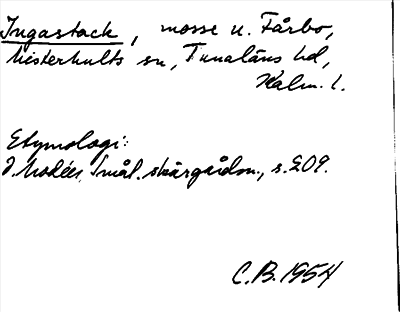 Ingastack, mosse u. Fårbo,
Misterhults sn, Tunaläns hd,
Kalm. l.
Etymologi:
J. Modéer, Smål. skärgårdsn., s. 209.
C.B. 1954